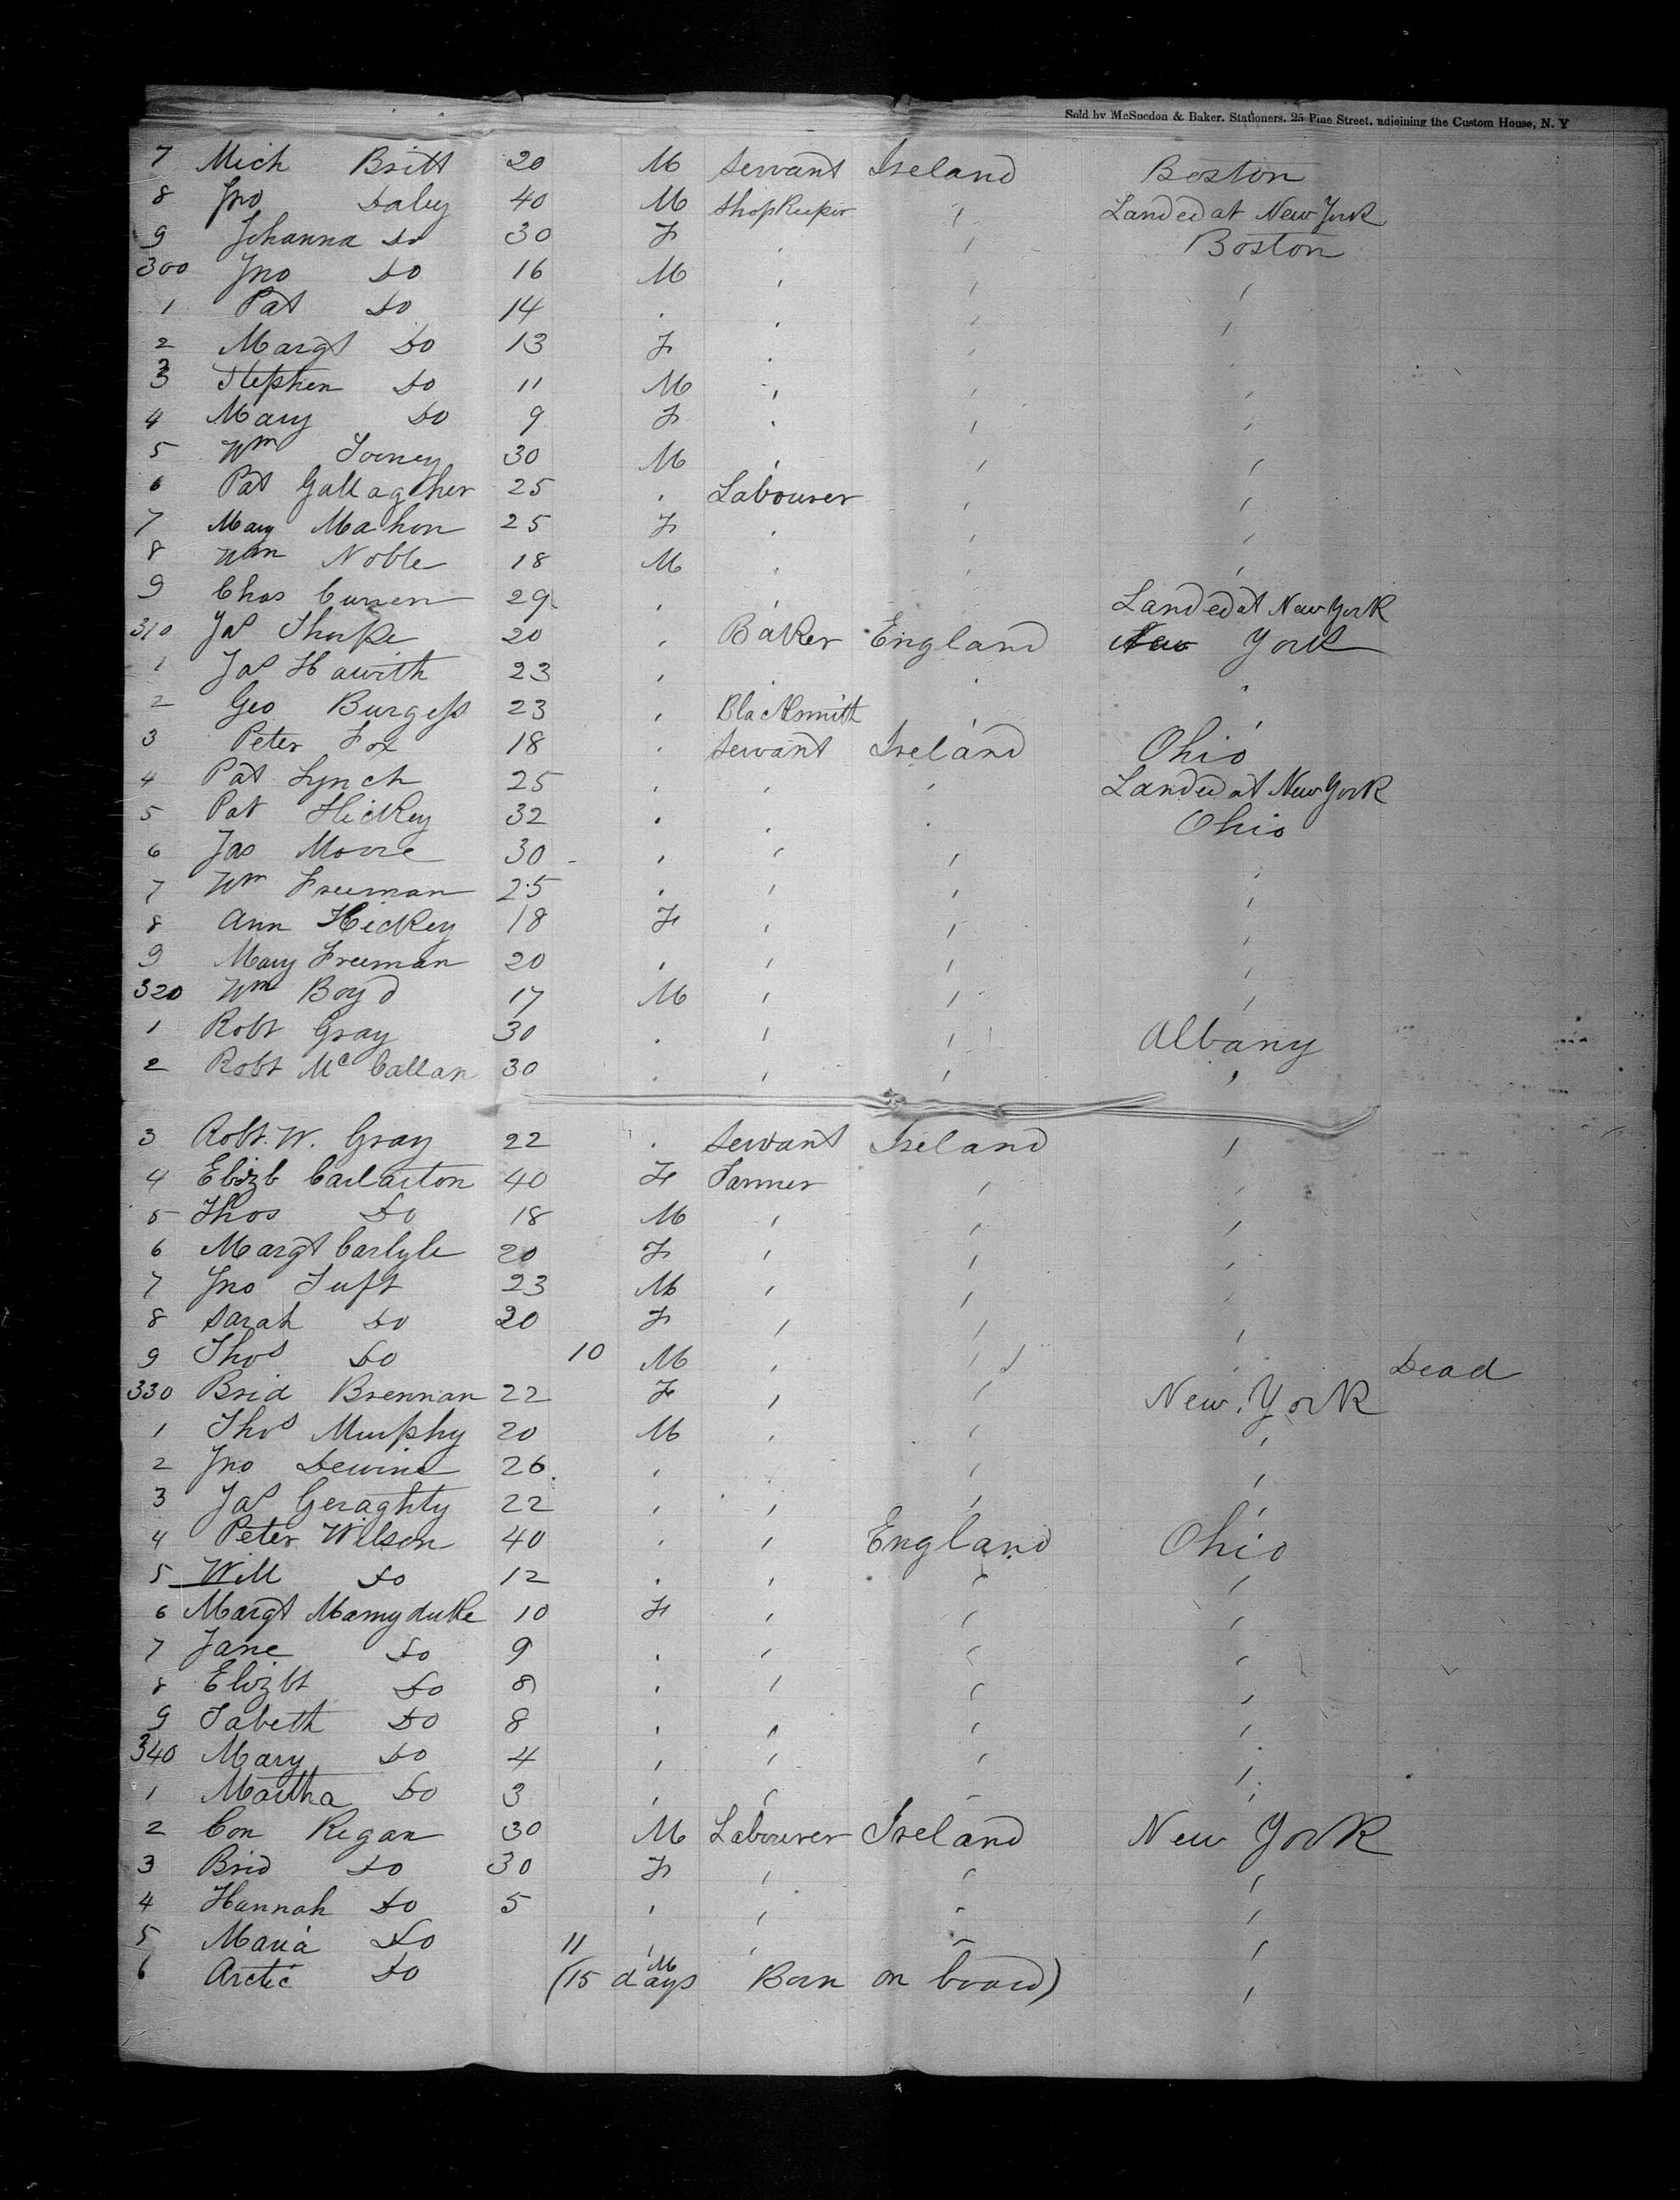 Sold by McSpedon & Baker. Stationers, 25 Pine Street, adjoining the Custom House, N. Y
7 Mich Britt 20 M Servant Ireland Boston
8 Jno Daley 40 M Shopkeeper ' Landed at New York
9 Johanna Do 30 F ' ' Boston
300 Jno Do 16 M ' ' '
1 Pat Do 14 ' ' ' '
2 Margt Do 13 F ' ' '
3 Stephen Do 11 M ' ' '
4 Mary Do 9 F ' ' '
5 Wm 30 M ' ' '
6 Pat Gallagher 25 ' Labourer ' '
7 Mary Mahon 25 F ' ' '
8 Wm Noble 18 M ' ' '
9 Chas Curren 29 ' ' Landed at New York
310 Jas Thorpe 20 ' Baker England New York
1 Jas Hawith 23 ' ' ' '
2 Geo Burgess 23 ' Blacksmith ' '
3 Peter Fox 18 ' Servant Ireland Ohio
4 Pat Lynch 25 ' ' ' Landed at New York
5 Pat Hickey 32 ' ' ' Ohio
6 Jas Moore 30 ' ' ' '
7 Wm Freeman 25 ' ' ' '
8 Ann Hickey 18 F ' ' '
9 Mary Freeman 20 ' ' ' '
320 Wm Boyd 17 M ' ' '
1 Robt Gray 30 ' ' ' Albany
2 Robt Mc Callan 30 ' ' ' '
3 Robt. W. Gray 22 ' Servant Ireland '
4 Elizb Carlarton 40 F Farmer ' '
5 Thos Do 18 M ' ' '
6 Margt Carlyle 20 F ' ' '
7 Jno Tuft 23 M ' ' '
8 Sarah Do 20 F ' ' '
9 Thos Do 10 M ' ' ' Dead
330 Brid Brennan 22 F ' ' New York
1 Thos Murphy 20 M ' ' '
2 Jno Devine 26 ' ' ' '
3 Jas Geraghty 22 ' ' ' '
4 Peter Wilson 40 ' ' England Ohio
5 Will Do 12 ' ' ' '
6 Margt Mamyduke 10 F ' ' '
7 Jane Do 9 ' ' ' '
8 Elizbt Do 8 ' ' ' '
9 Tabeth Do 8 ' ' ' '
340 Mary Do 4 ' ' ' '
1 Martha Do 3 ' ' ' '
2 Con Regan 30 M Labourer Ireland New York
3 Brid Do 30 F ' ' '
4 Hannah Do 5 ' ' ' '
5 Maria Do 11 ' ' ' '
6 Arctic Do (15 days M Born on board) '